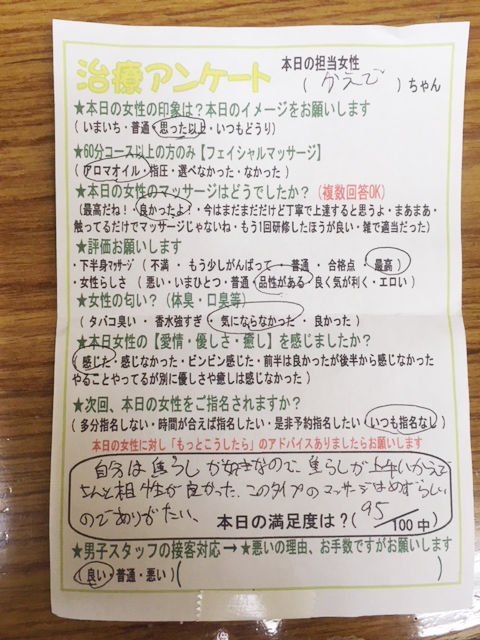 治療アンケート
本日の担当女性
( かえで )ちゃん
★本日の女性の印象は?本日のイメージをお願いします
( いまいち・普通・思った以上・いつもどうり )
★60分コース以上の方のみ【フェイシャルマッサージ】
( アロマオイル・指圧・選べなかった・なかった )
★本日の女性のマッサージはどうでしたか?(複数回答OK)
(最高だね!・良かったよ!・今はまだまだだけど丁寧で上達すると思うよ・まあまあ・
触ってるだけでマッサージじゃないね・もう1回研修したほうが良い・雑で適当だった)
★評価お願いします
・下半身マッサージ ( 不満 ・ もう少しがんばって ・ 普通 ・ 合格点 ・ 最高 )
・女性らしさ ( 悪い・いまひとつ・普通・品性がある・良く気が利く・エロい )
★女性の匂い?(体臭・口臭等)
( タバコ臭い ・ 香水強すぎ ・ 気にならなかった ・ 良かった )
★本日女性の【愛情・優しさ・癒し】を感じましたか?
(感じた・感じなかった・ビンビン感じた・前半は良かったが後半から感じなかった
やることやってるが別に優しさや癒しは感じなかった )
★次回、本日の女性をご指名されますか?
( 多分指名しない・時間が合えば指名したい・是非予約指名したい・いつも指名なし )
本日の女性に対し「もっとこうしたら」のアドバイスありましたらお願いします
自分は焦らしが好きなので、焦らしが上手いかえで
ちゃんと相性が良かった。このタイプのマッサージはめずらしい
のでありがたい。
本日の満足度は?( 95 /100中 )
★男子スタッフの接客対応→★悪いの理由、お手数ですがお願いします
( 良い・普通・悪い )( )